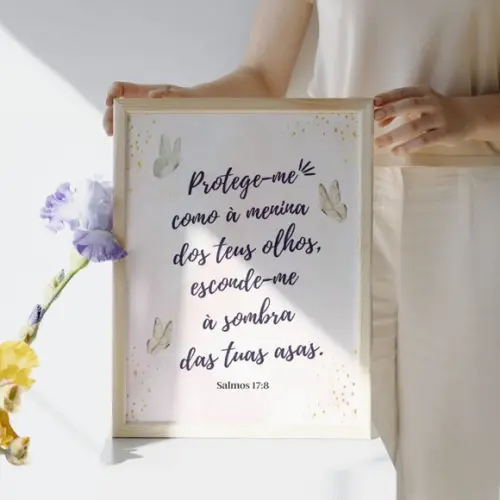 Protege-me
como à menina
dos teus olhos,
esconde-me
à sombra
das tuas asas.
Salmos 17:8